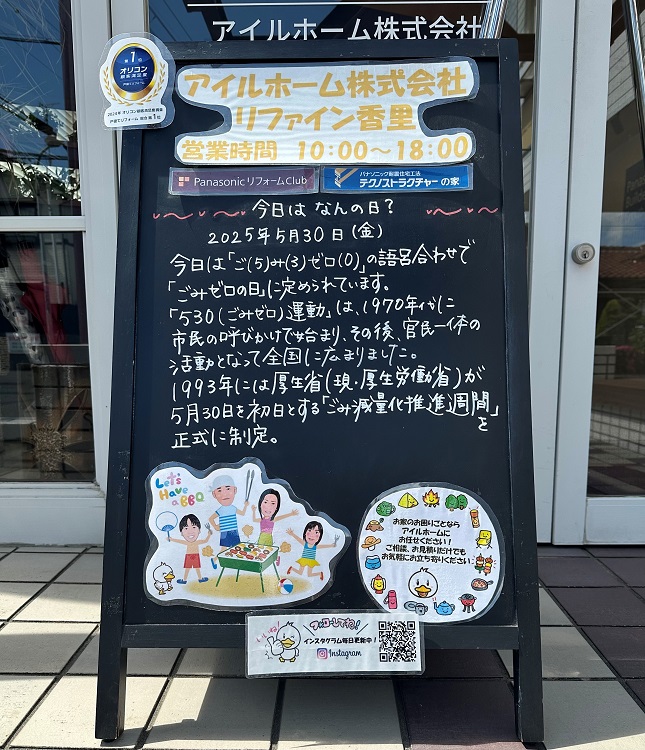 アイルホーム株式会社
第1位
オリコン
顧客満足度
2024年 オリコン顧客満足度調査
戸建てリフォーム 総合 第1位
アイルホーム株式会社
リファイン香里
営業時間 10:00〜18:00
Panasonic リフォーム Club
パナソニック耐震住宅工法
テクノストラクチャーの家
今日は なんの日?
2025年5月30日(金)
今日は「ご(5)み(3)ゼロ(0)」の語呂合わせで
「ごみゼロの日」に定められています。
「530(ごみゼロ)運動」は、1970年代に
市民の呼びかけで始まり、その後、官民一体の
活動となって全国に広まりました。
1993年には厚生省(現・厚生労働省)が
5月30日を初日とする「ごみ減量化推進週間」を
正式に制定。
Let's
Have
a BBQ
お家のお困りごとなら
アイルホームに
お任せください!
ご相談、お見積りだけでも
お気軽にお立ち寄りください
フォローしてね!
インスタグラム毎日更新中!
Instagram